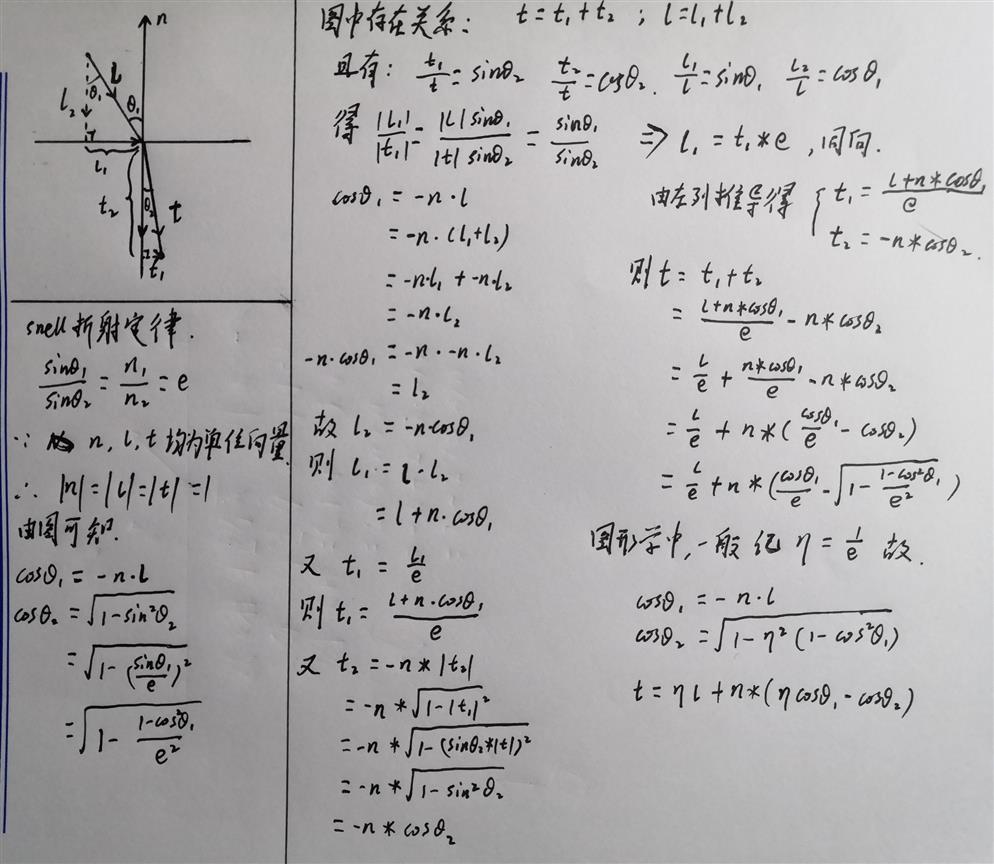 n
l
θ₁
θ₁
l₂
l₁
t₂
θ₂
t
t₁
snell 折射定律.
sinθ₁/sinθ₂ = n₁/n₂ = e
∵ n, l, t 均为单位向量
∴ |n|=|l|=|t|=1
由图可知.
cosθ₁ = -n·l
cosθ₂ = √(1-sin²θ₂)
= √(1-(sinθ₁/e)²)
= √(1-(1-cos²θ₁)/e²)
图中存在关系: t=t₁+t₂ ; l=l₁+l₂
且有: t₁/t = sinθ₂ t₂/t = cosθ₂. l₁/l = sinθ₁ l₂/l = cosθ₁
得 |l₁|/|t₁| = |l| sinθ₁/|t| sinθ₂ = sinθ₁/sinθ₂ ⇒ l₁ = t₁*e , 同向.
cosθ₁ = -n·l
= -n·(l₁+l₂)
= -n·l₁ + -n·l₂
= -n·l₂
-n·cosθ₁ = -n·-n·l₂
= l₂
故 l₂ = -n·cosθ₁
则 l₁ = l-l₂
= l+n·cosθ₁
又 t₁ = l₁/e
则 t₁ = (l+n·cosθ₁)/e
又 t₂ = -n*|t₂|
= -n*√(1-|t₁|²)
= -n*√(1-(sinθ₂*|t|)²)
= -n*√(1-sin²θ₂)
= -n*cosθ₂
由左列推导得 { t₁ = (l+n*cosθ₁)/e
t₂ = -n*cosθ₂.
则 t = t₁+t₂
= (l+n*cosθ₁)/e - n*cosθ₂
= l/e + n*cosθ₁/e - n*cosθ₂
= l/e + n*(cosθ₁/e - cosθ₂)
= l/e + n*(cosθ₁/e - √(1-(1-cos²θ₁)/e²))
图形学中, 一般 η = 1/e 故.
cosθ₁ = -n·l
cosθ₂ = √(1-η²(1-cos²θ₁))
t = ηl + n*(ηcosθ₁-cosθ₂)